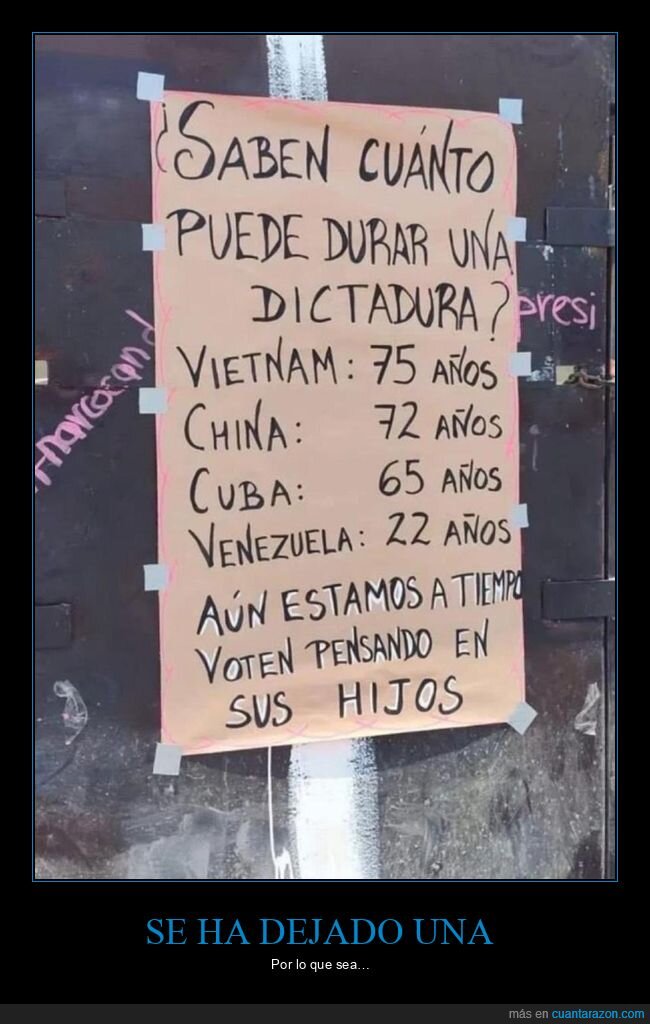 ¿SABEN CUÁNTO
PUEDE DURAR UNA
DICTADURA?
presi
VIETNAM: 75 AÑOS
CHINA: 72 AÑOS
CUBA: 65 AÑOS
VENEZUELA: 22 AÑOS
AÚN ESTAMOS A TIEMPO
VOTEN PENSANDO EN
SUS HIJOS
SE HA DEJADO UNA
Por lo que sea...
más en cuantarazon.com